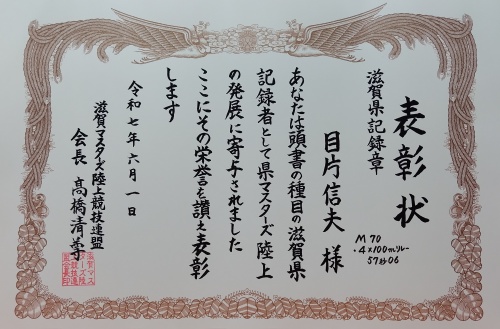 表彰状
滋賀県記録章
M70
・4×100mリレー
57秒06
目片信夫 様
あなたは頭書の種目の滋賀県
記録者として県マスターズ陸上
の発展に寄与されました
ここにその栄誉を讃え表彰
します
令和七年六月一日
滋賀マスターズ陸上競技連盟
会長 髙橋清孝